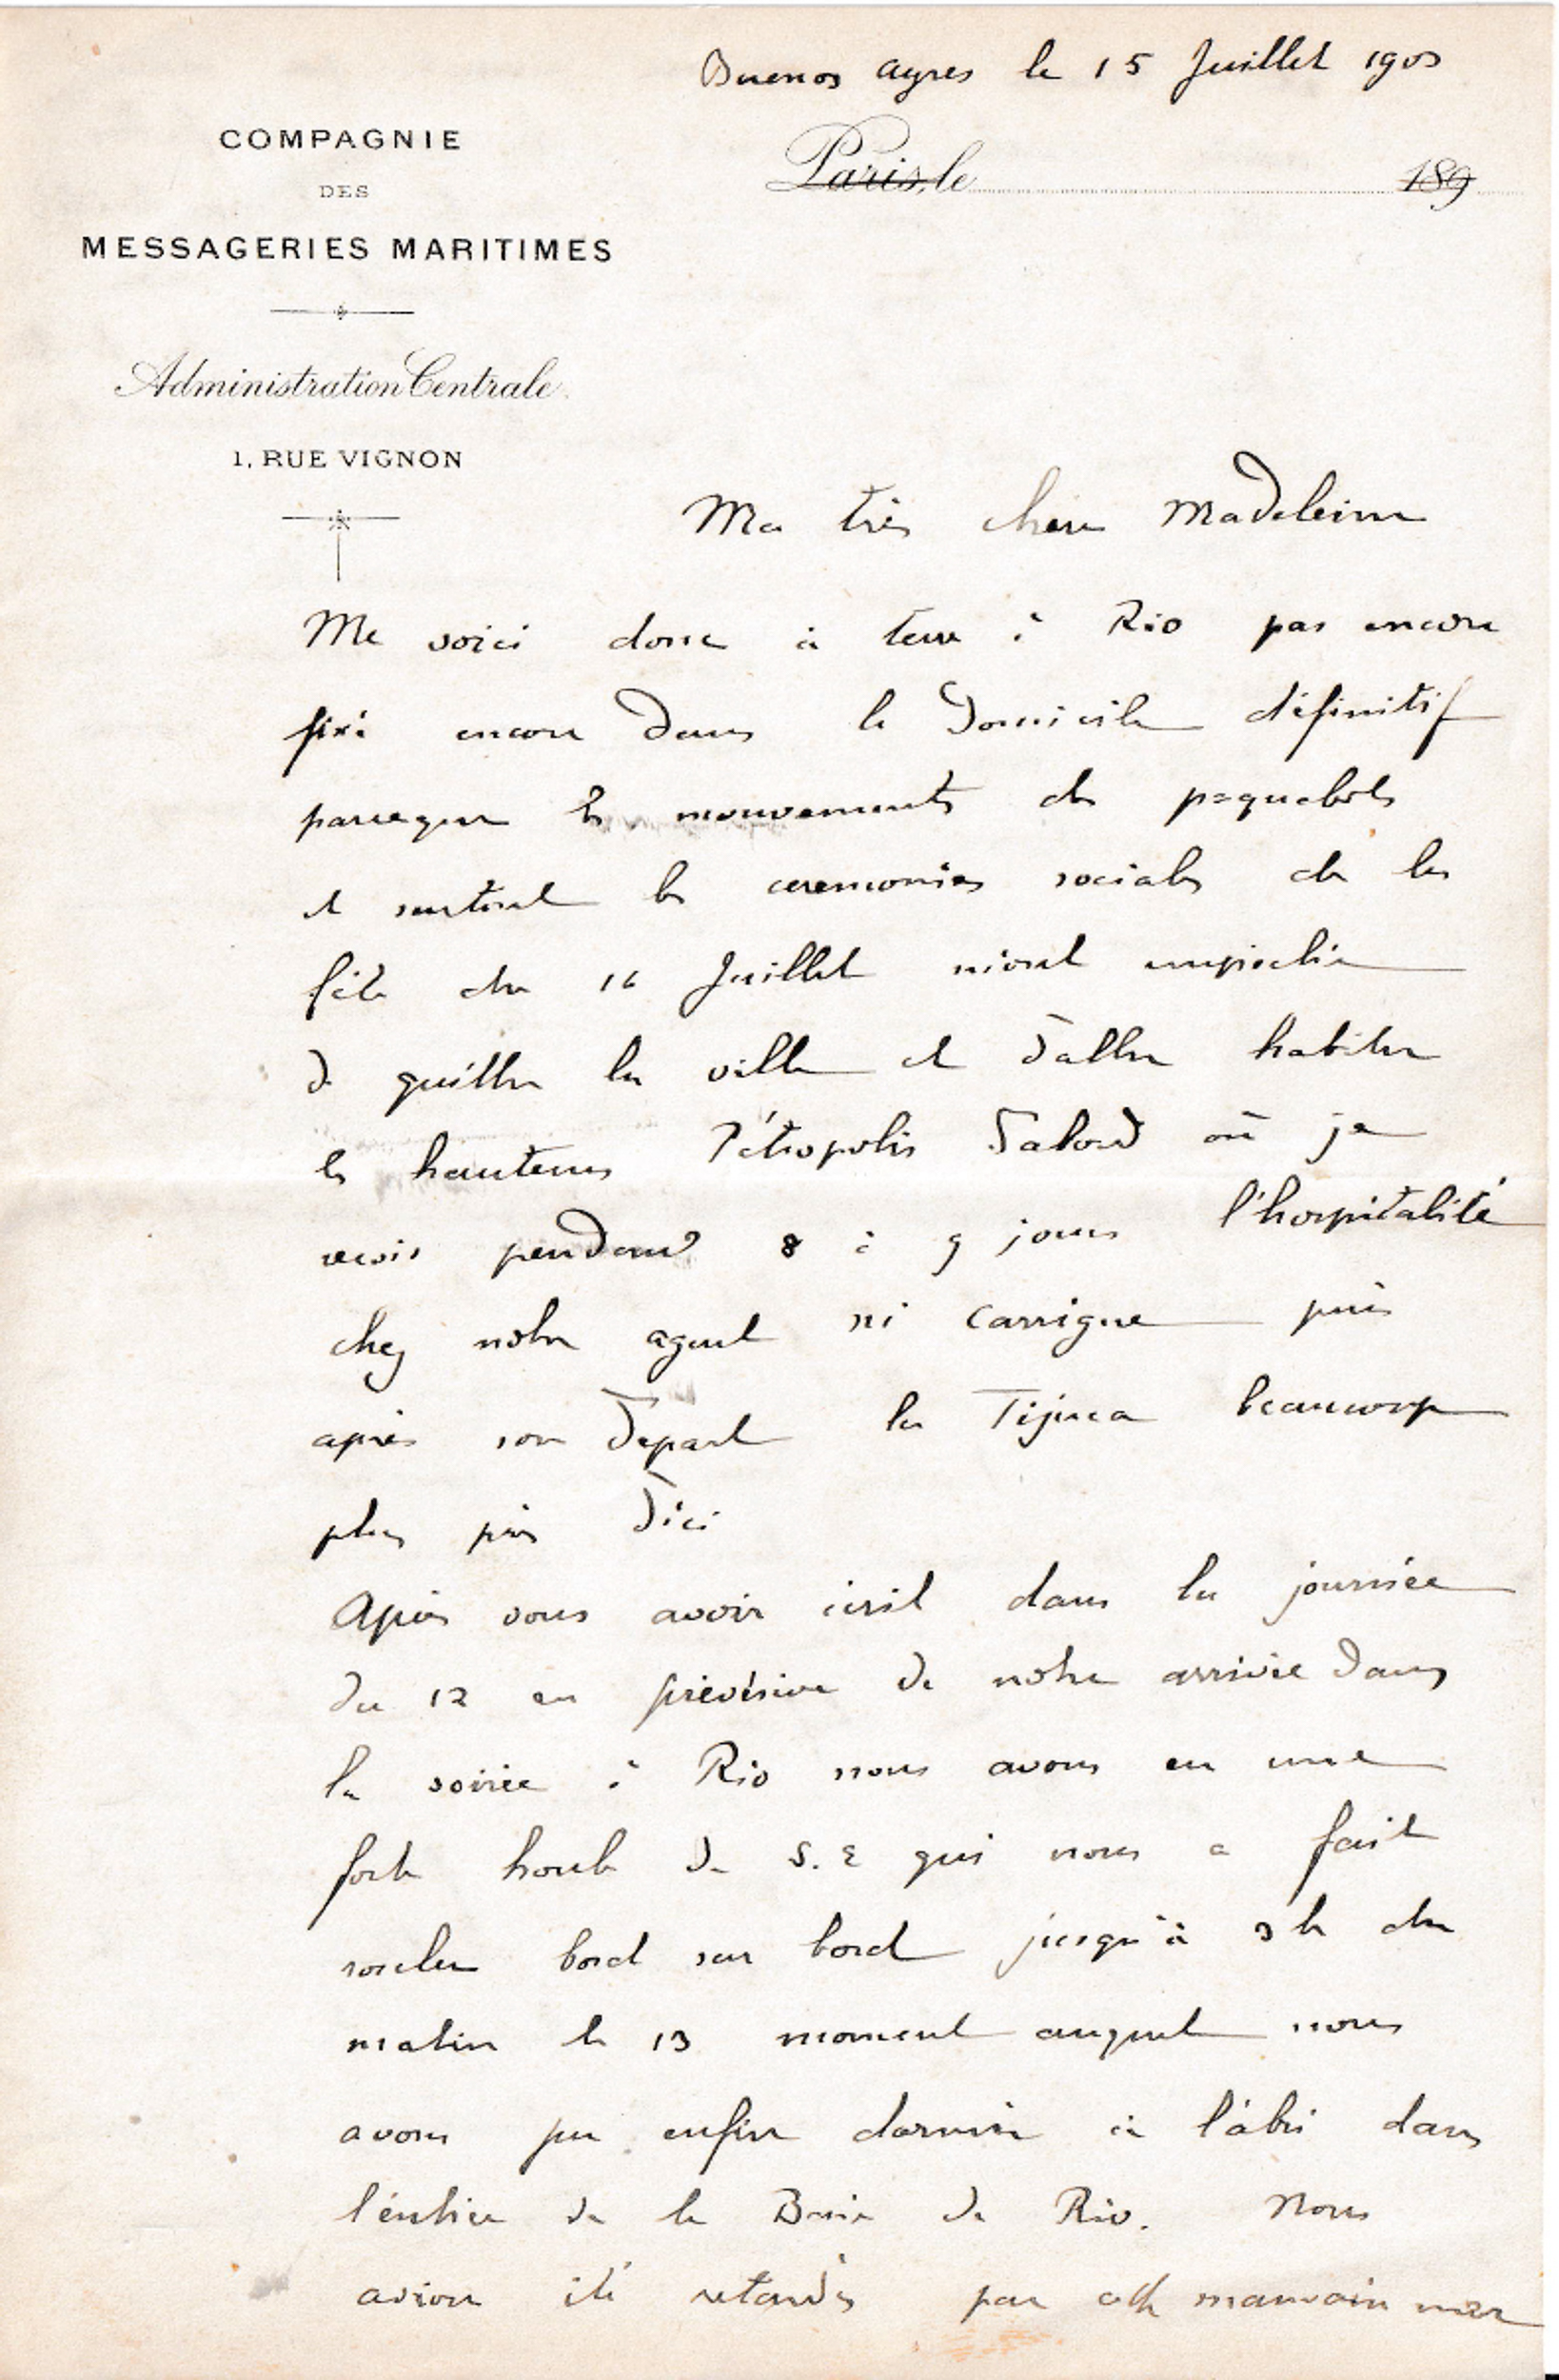 Buenos ayres le 15 Juillet 1903
COMPAGNIE
DES
MESSAGERIES MARITIMES
Administration Centrale.
1, RUE VIGNON
Paris, le 189
Ma très chère Madeleine
Me voici donc à terre à Rio pas encore
fixé encore dans le domicile définitif
parceque les mouvements des paquebots
et surtout les ceremonies sociales de la
fête du 14 Juillet m'ont empêché
de quitter la ville et d'aller habiter
les hauteurs Pétropolis d'abord où je
reçois pendant 8 à 9 jours l'hospitalité
chez notre agent puis
après son départ la Tijuca beaucoup
plus près d'ici
Après vous avoir écrit dans la journée
du 12 en prévision de notre arrivée dans
la soirée à Rio nous avons eu une
forte houle de S. E qui nous a fait
rouler bord sur bord jusqu'à 3 h du
matin le 13 moment auquel nous
avons pu enfin dormir à l'abri dans
l'entrée de la Baie de Rio. Nous
avions été retardés par cette mauvaise mer